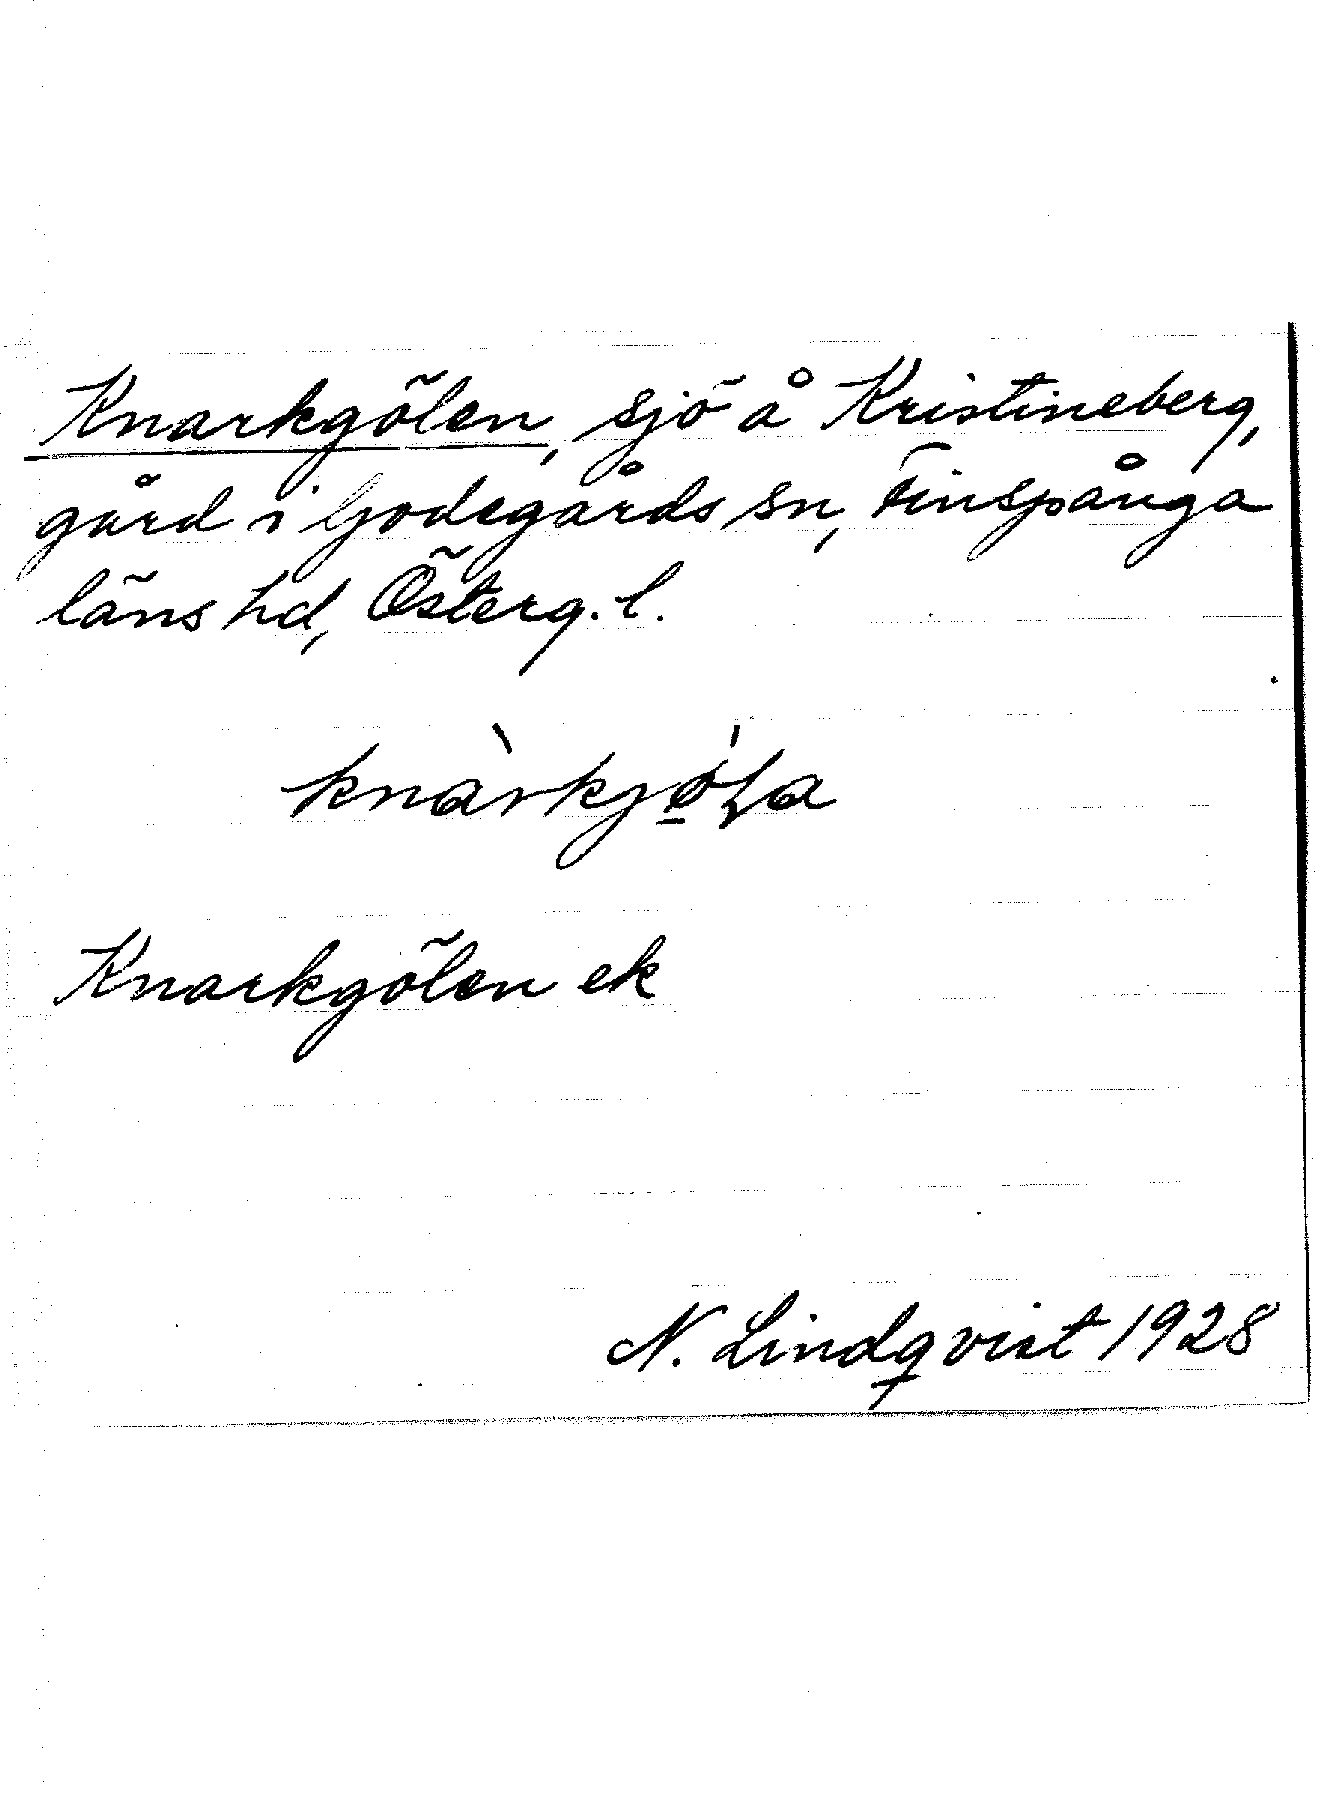 Knarkgölen, sjö å Kristineberg,
gård i Godegårds sn, Finspånga
läns hd, Österg. l.
knàrkjǿ̲ɫa
Knarkgölen ek
N. Lindqvist 1928